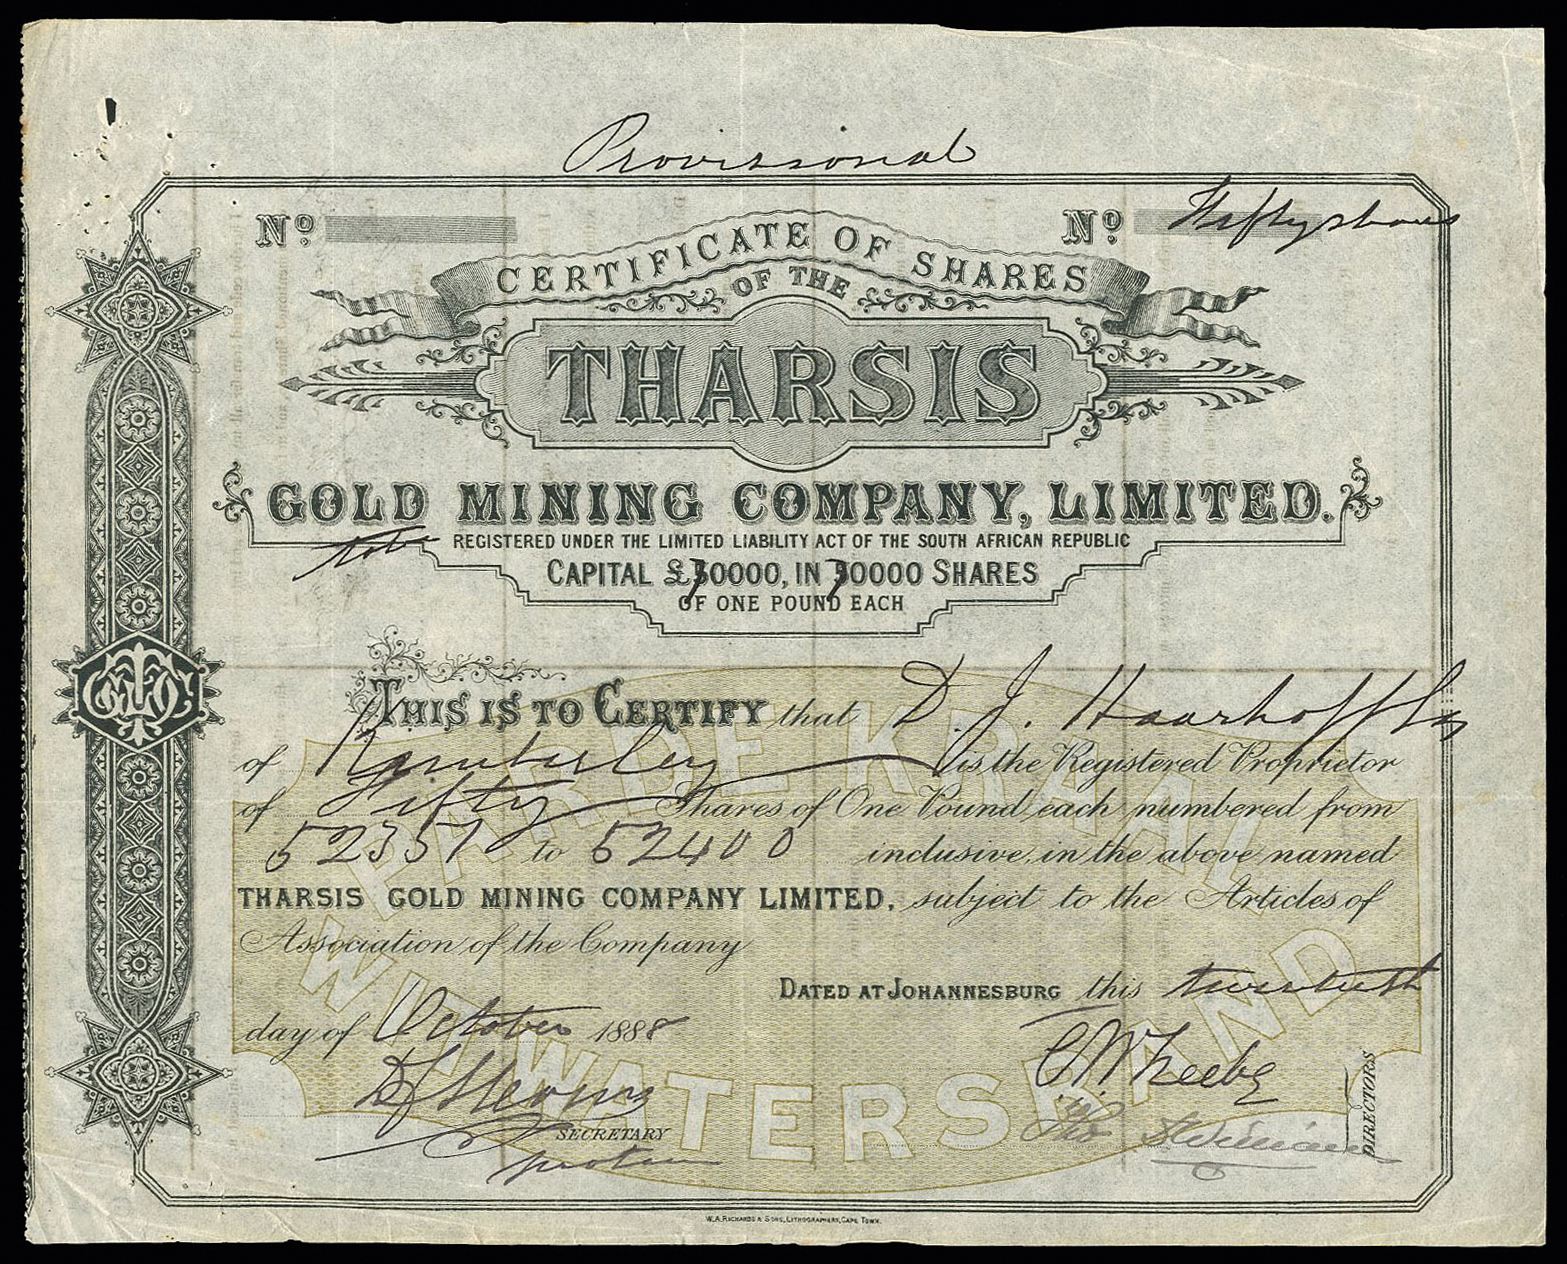 Provissional
No.
No. Fifty shares
CERTIFICATE OF SHARES
OF THE
THARSIS
GOLD MINING COMPANY, LIMITED.
REGISTERED UNDER THE LIMITED LIABILITY ACT OF THE SOUTH AFRICAN REPUBLIC
CAPITAL £70000, IN 70000 SHARES
OF ONE POUND EACH
THIS IS TO CERTIFY that D. J. Haarhoff Esq
of Kimberley is the Registered Proprietor
of Fifty Shares of One Pound each numbered from
52351 to 52400 inclusive, in the above named
THARSIS GOLD MINING COMPANY LIMITED, subject to the Articles of
Association of the Company
DATED AT JOHANNESBURG this twentieth
day of October 1888
SECRETARY
pro tem
DIRECTORS
PAARDE KRAAL
WITWATERSRAND
W. A. RICHARDS & SONS, LITHOGRAPHERS, CAPE TOWN.